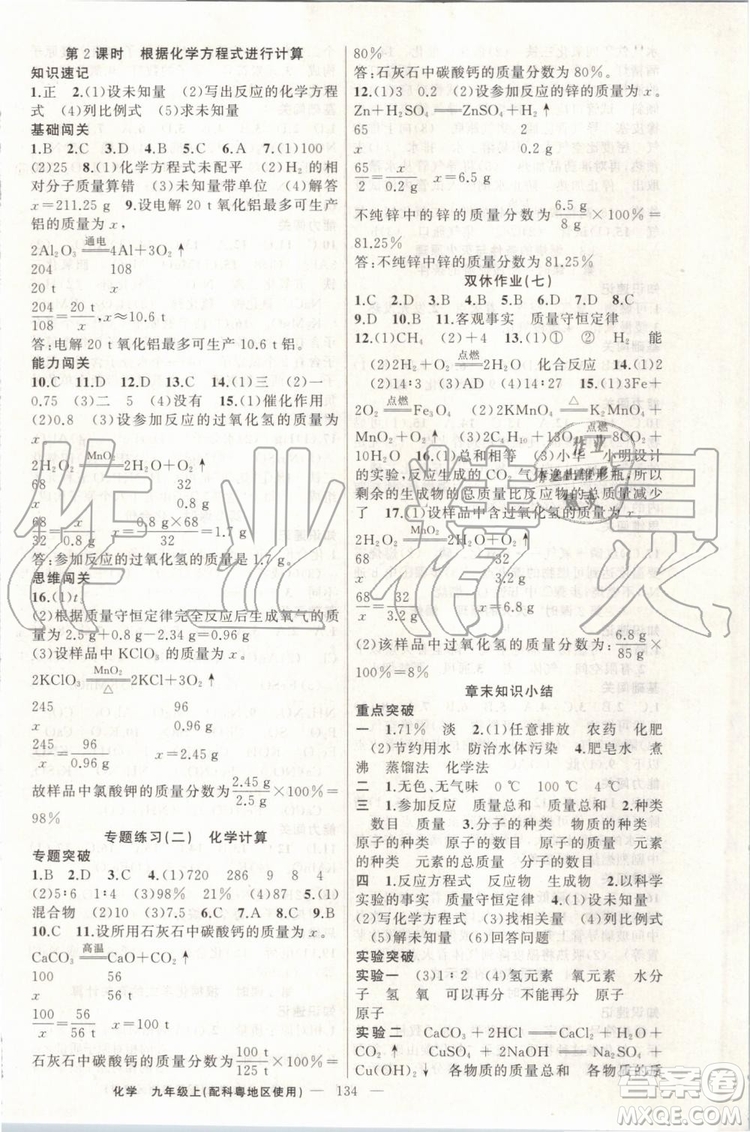 第2课时　根据化学方程式进行计算
知识速记
1.正　2.(1)设未知量　(2)写出反应的化学方程
式　(4)列比例式　(5)求未知量
基础闯关
1.B　2.A　3.D　4.D　5.B　6.A　7.(1)100
(2)25　8.(1)化学方程式未配平　(2)H₂的相
对分子质量算错　(3)未知量带单位　(4)解答
x=211.25 g　9.设电解 20 t 氧化铝最多可生产
铝的质量为 x,
2Al₂O₃ 通电 4Al+3O₂↑
204　108
20 t　x
204/108=20 t/x　x≈10.6 t
答:电解 20 t 氧化铝最多可生产 10.6 t 铝。
能力闯关
10.C　11.D　12.D　13.B　14.(1)三　(2)一
0.01x　(3)二　5　没有　15.(1)催化作用
(2)0.8　(3)设参加反应的过氧化氢的质量为
x
2H₂O₂ MnO₂ 2H₂O+O₂↑
68　32
x　0.8 g
68/32=x/0.8 g　x=0.8 g×68/32=1.7 g
答:参加反应的过氧化氢的质量是 1.7 g。
思维闯关
16.(1)t₃
(2)根据质量守恒定律完全反应后生成氧气的质量为
2.5 g+0.8 g-2.34 g=0.96 g
(3)设样品中 KClO₃ 的质量为 x。
2KClO₃ MnO₂ △ 2KCl+3O₂↑
245　96
x　0.96 g
245/x=96/0.96 g　x=2.45 g
故样品中氯酸钾的质量分数为 2.45 g/2.5 g×100%=
98%
专题练习(二)　化学计算
专题突破
1.B　2.D　3.D　4.(1)720　286　9　8　4
(2)5:6　1:4　(3)98%　21%　84　5.(1)
混合物　(2)0.2　6.C　7.A　8.B　9.D　10.B
10.C　11.设所用石灰石中碳酸钙的质量为 x。
CaCO₃ 高温 CaO+CO₂↑
100　56
x　56 t
100/x=56/56 t　x=100 t
石灰石中碳酸钙的质量分数为 100 t/125 t×100%=
80%
答:石灰石中碳酸钙的质量分数为 80%。
12.(1)3　0.2　(2)设参加反应的锌的质量为 x。
Zn+H₂SO₄ ═ ZnSO₄+H₂↑
65　2
x　0.2 g
65/2=x/0.2 g　x=6.5 g
不纯锌中的锌的质量分数为 6.5 g/8 g×100%=
81.25%
答:不纯锌中的锌的质量分数为 81.25%
双休作业(七)
1.C　2.C　3.D　4.B　5.C　6.D　7.A　8.C
9.D　10.B　11.客观事实　质量守恒定律
12.(1)C　(2)A　13.(1)①　②　H　能
(2)2H₂+O₂ 点燃 2H₂O　化合反应　14.(1)2
(2)14:3　(3)D　(4)14:27　15.(1)3Fe+
2O₂ 点燃 Fe₃O₄　(2)2KMnO₄ △ K₂MnO₄+
MnO₂+O₂↑　(3)2C₄H₁₀+13O₂ 点燃 8CO₂+
10H₂O　16.(1)总和相等　(2)小华　小明设计
的实验,反应生成的 CO₂ 气体逸出锥形瓶,所以
剩余的生成物的总质量比反应物的总质量减少
了　17.(1)设样品中含过氧化氢的质量为 x。
2H₂O₂ MnO₂ 2H₂O+O₂↑
68　32
x　3.2 g
68/x=32/3.2 g　x=6.8 g
(2)该样品中过氧化氢的质量分数为 6.8 g/85 g×
100%=8%
章末知识小结
重点突破
一　1.71%　淡　2.(1)任意排放　农药　化肥
(2)节约用水　防治水体污染　4.肥皂水　煮
沸　蒸馏法　化学法
二　1.无色、无气味　0 ℃　100 ℃　4 ℃
三　1.参加反应　质量总和　质量总和　2.种类
数目　质量　3.分子的种类　物质的种类
原子的种类　原子的数目　原子的质量　元素
的种类　元素的总质量　分子的数目
四　1.反应方程式　反应物　生成物　2.以科学
实验的事实　质量守恒定律　3.(1)设未知量
(2)化学方程式　(3)找相关量　(4)列比例式
(5)解未知量　(6)回答问题
实验突破
实验一　(3)1:2　(4)氢元素　氧元素　水分
子　氢　氧　可以再分　不能再分　原子
原子
实验二　CaCO₃+2HCl ═ CaCl₂+H₂O+
CO₂↑　CuSO₄+2NaOH ═ Na₂SO₄+
Cu(OH)₂↓　质量守恒定律
化学　九年级上(配科粤地区使用)　— 134 —
作业精灵
MYDAAN.COM